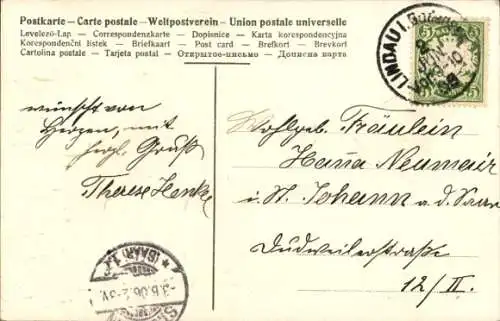 Postkarte – Carte postale – Weltpostverein – Union postale universelle
Levelező-Lap — Correspondenzkarte — Dopisnice — Karta korespondencyjna
Korespondenční lístek — Briefkaart — Post card — Brefkort — Brevkort
Cartolina postale — Tarjeta postal — Открытое-письмо — Дописна карта
LINDAU i.
5 5
wünscht von
Herzen, mit
herzl. Gruß
Therese Henke
Wohlgeb. Fräulein
Hanna Neumair
i. St. Johann a. d. Saar
Dudweilerstraße
12/II.
(SAAR) 1.
-3.8.06.2-3V.